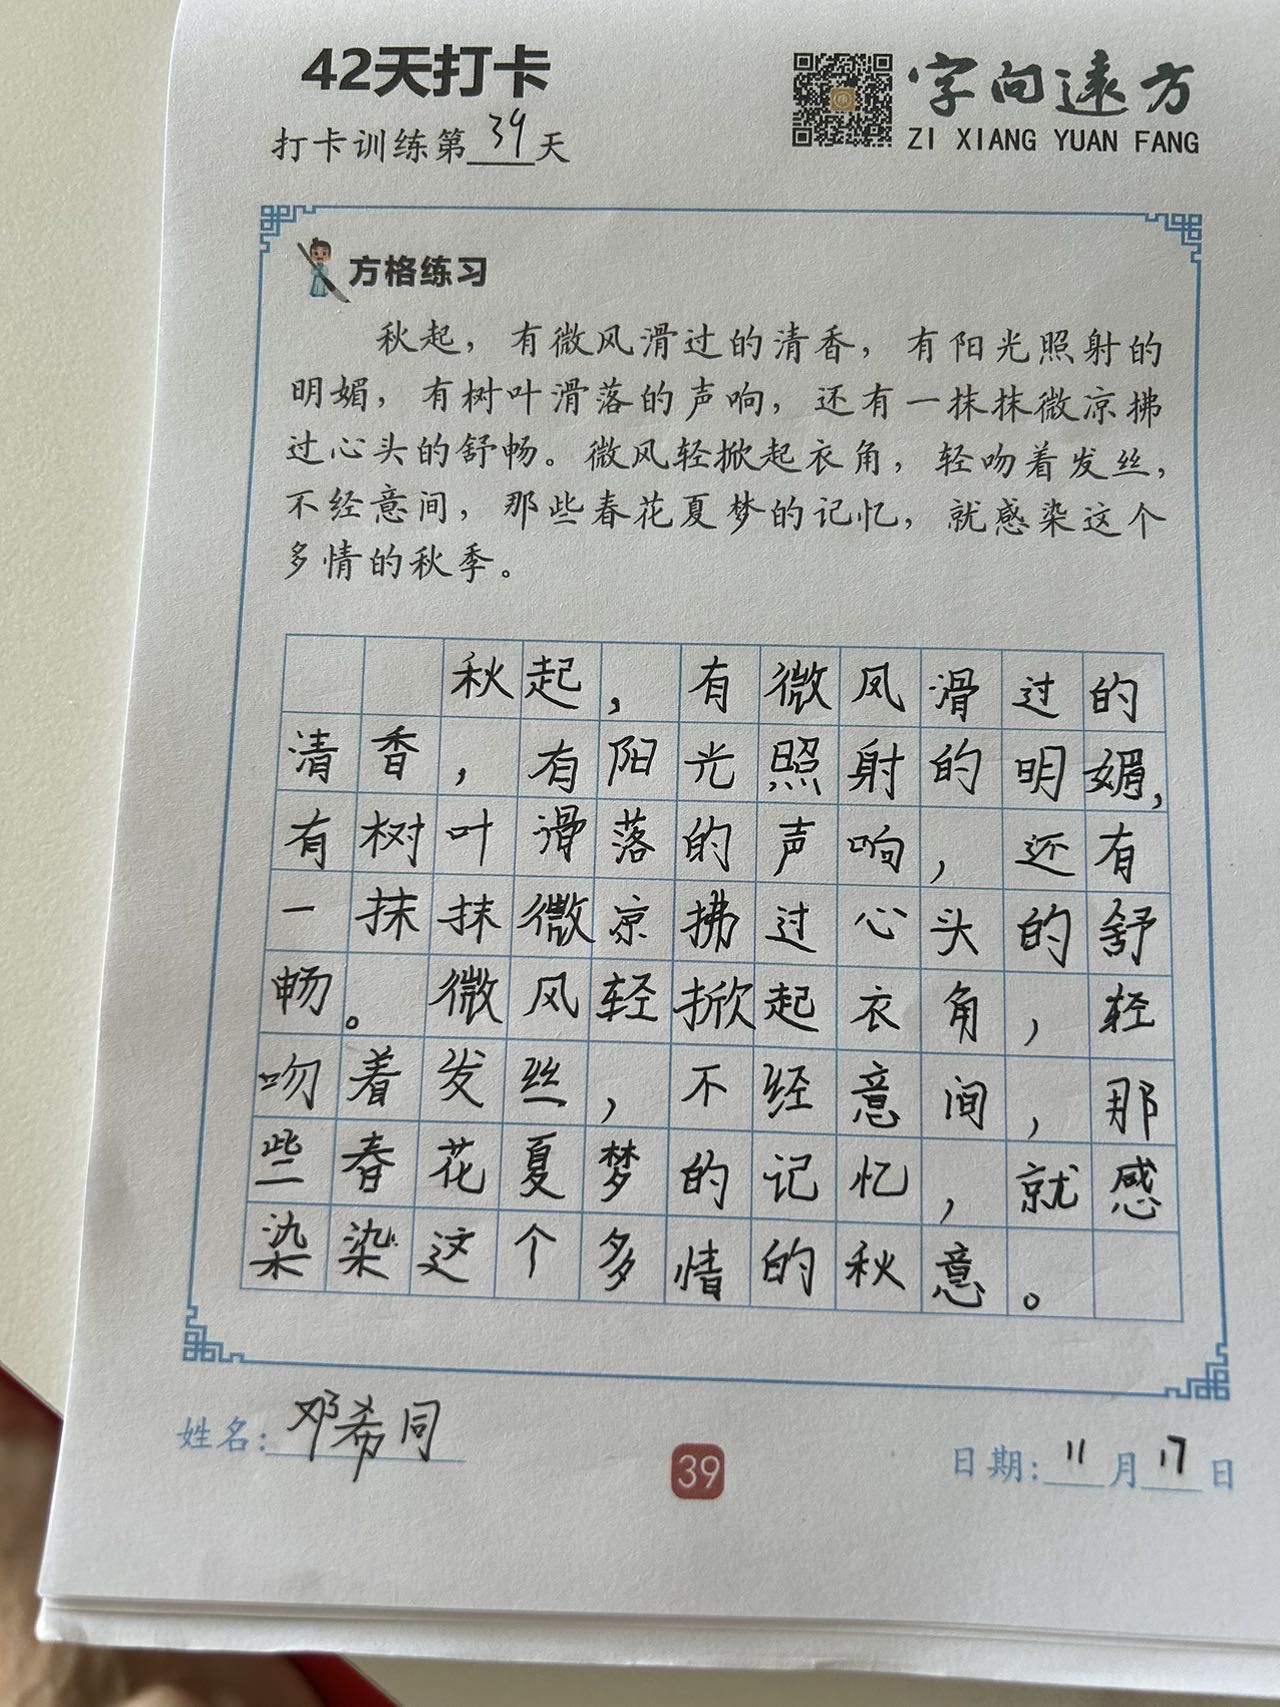 42天打卡
字向远方
打卡训练第39天
ZI XIANG YUAN FANG
方格练习
秋起，有微风滑过的清香，有阳光照射的
明媚，有树叶滑落的声响，还有一抹抹微凉拂
过心头的舒畅。微风轻掀起衣角，轻吻着发丝，
不经意间，那些春花夏梦的记忆，就感染这个
多情的秋季。
秋起，有微风滑过的
清香，有阳光照射的明媚，
有树叶滑落的声响，还有
一抹抹微凉拂过心头的舒
畅。微风轻掀起衣角，轻
吻着发丝，不经意间，那
些春花夏梦的记忆，就感
染染这个多情的秋意。
姓名：邓希同
39
日期：11月17日